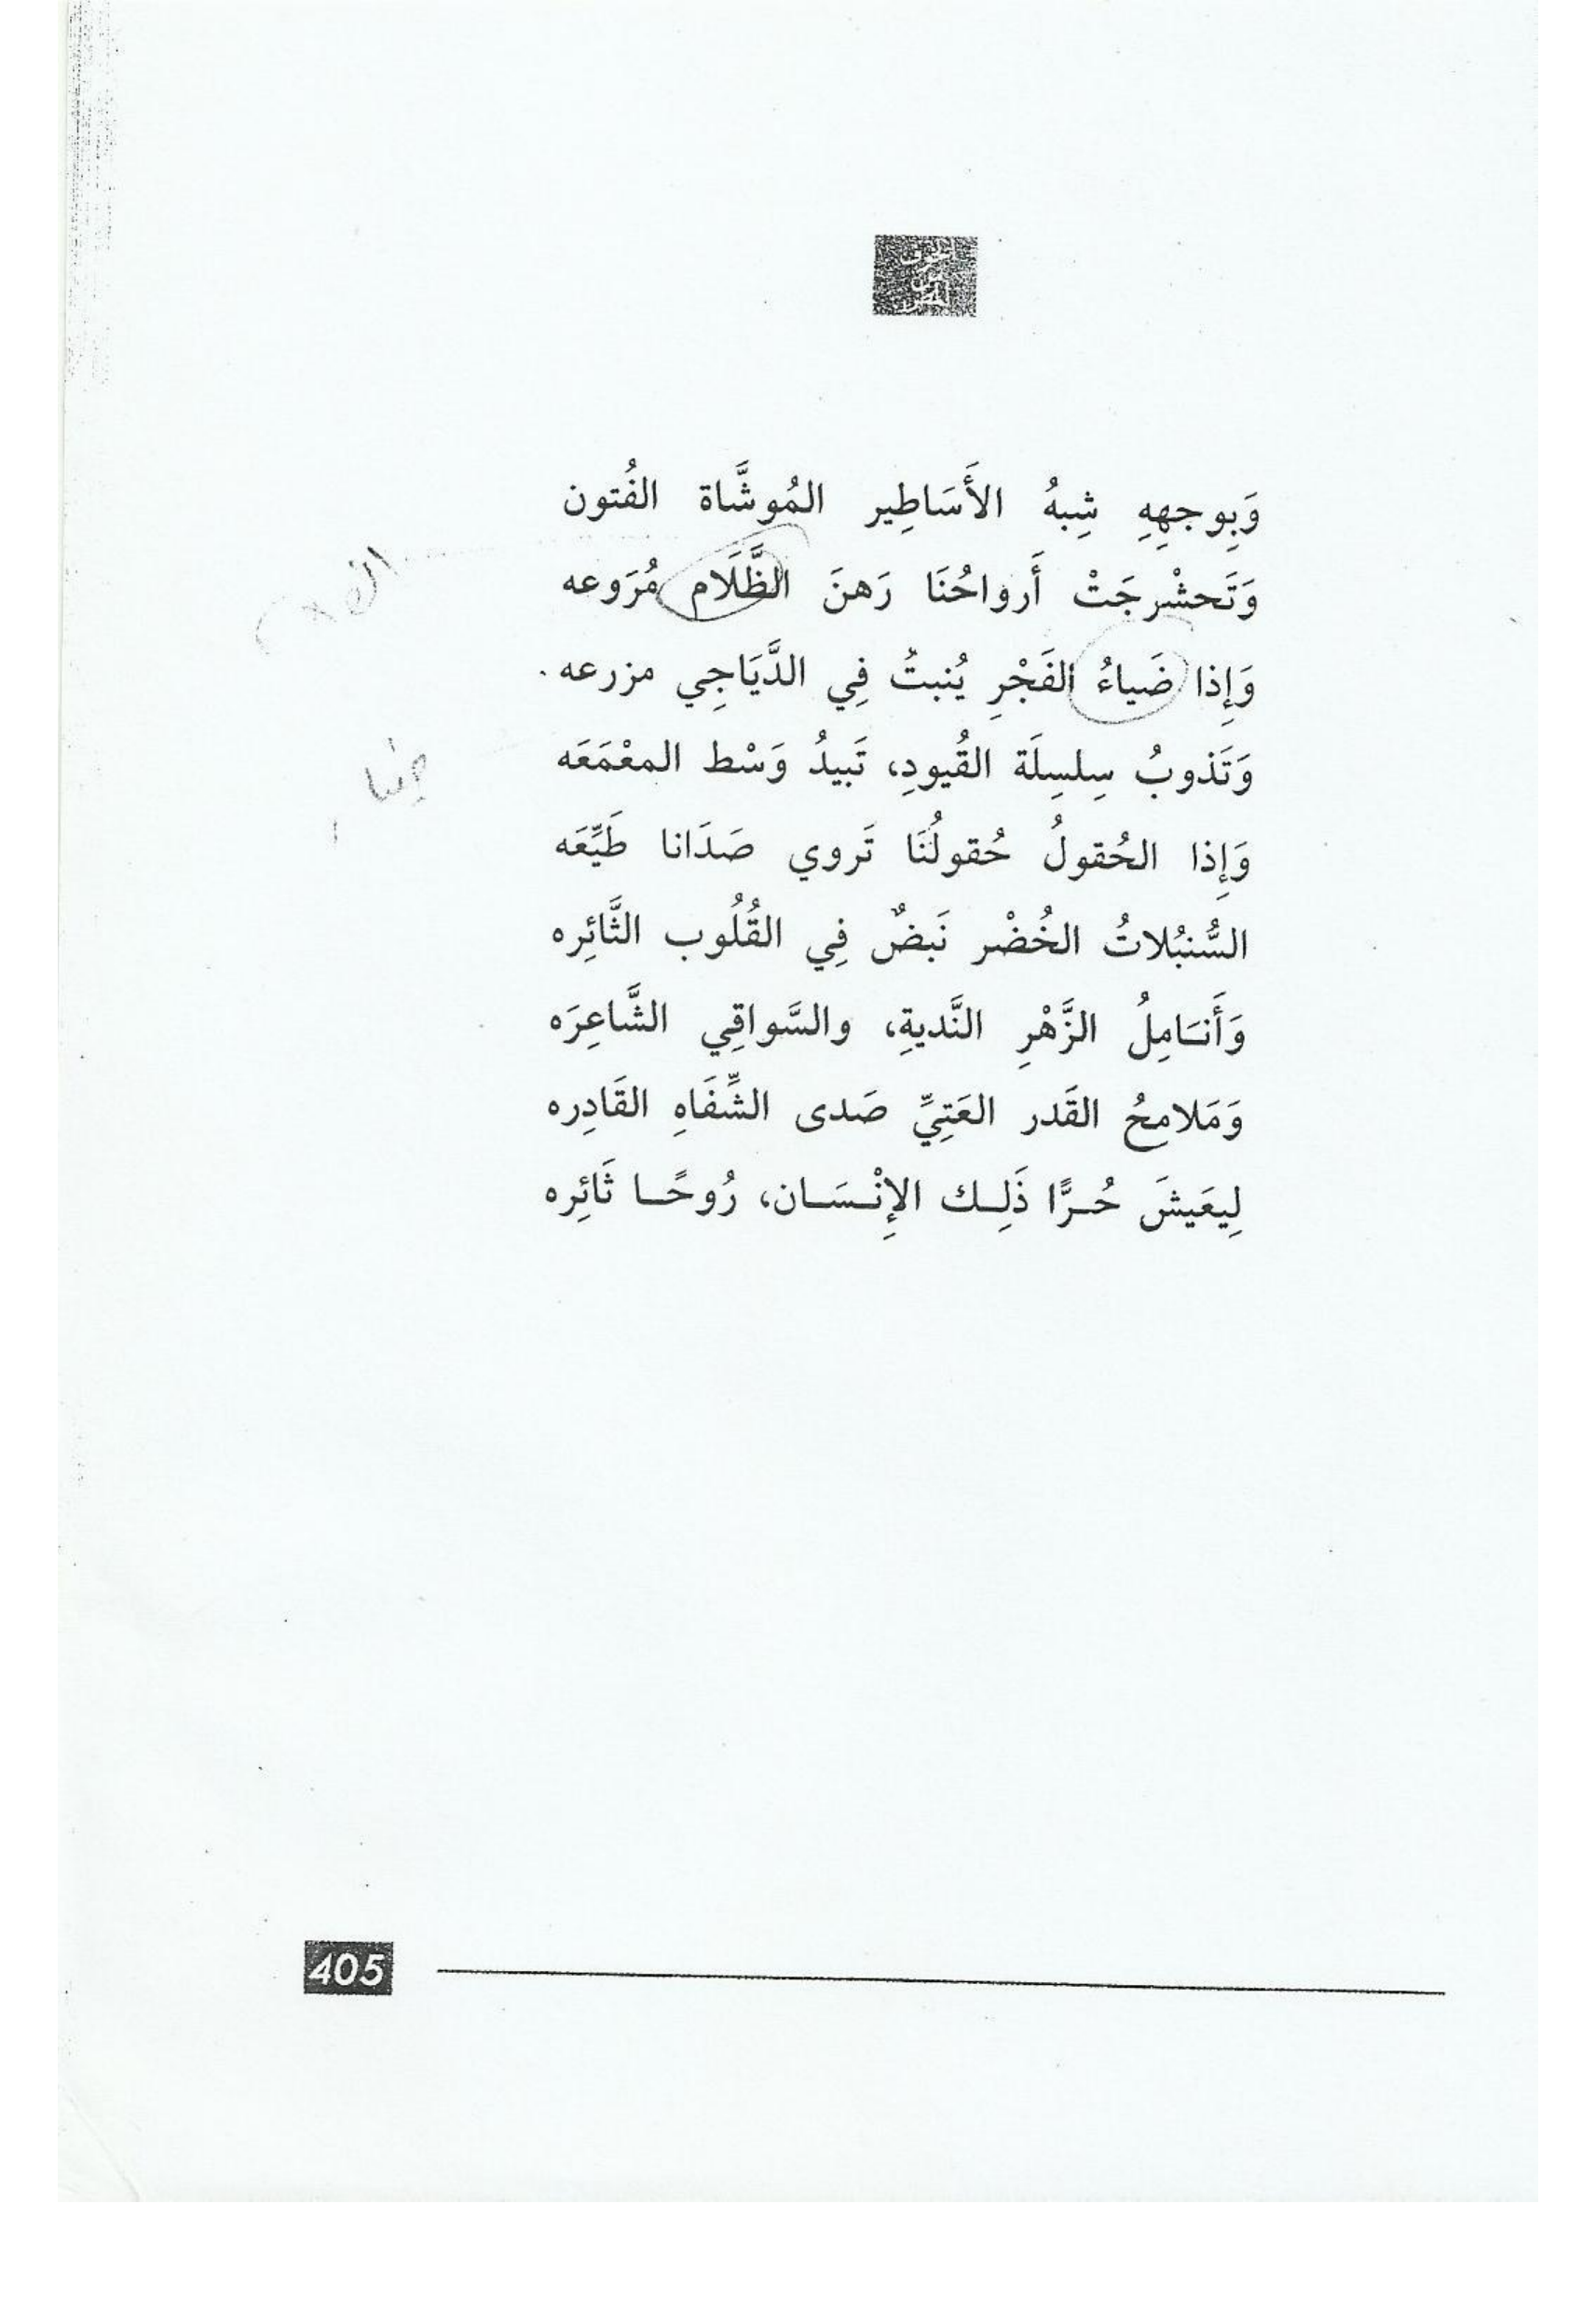 وَبِوجهِهِ شِبهُ الأَسَاطِير المُوشَّاة الفُتون
وَتَحشْرجَتْ أَرواحُنَا رَهنَ الظَّلَام مُرَوعه
وَإِذا ضَياءُ الفَجْرِ يُنبتُ فِي الدَّيَاجِي مزرعه
وَتَذوبُ سِلسِلَة القُيودِ، تَبيدُ وَسْط المعْمَعَه
وَإِذا الحُقولُ حُقولُنَا تَروي صَدَانا طَيِّعَه
السُّنبُلاتُ الخُضْر نَبضٌ فِي القُلُوب الثَّائِره
وَأَنـَامِلُ الزَّهْرِ النَّديةِ، والسَّواقِي الشَّاعِرَه
وَمَلامحُ القَدر العَتِيِّ صَدى الشِّفَاهِ القَادِره
لِيعَيشَ حُـرًّا ذَلِـك الإِنْـسَـان، رُوحًـا ثَائِره
405